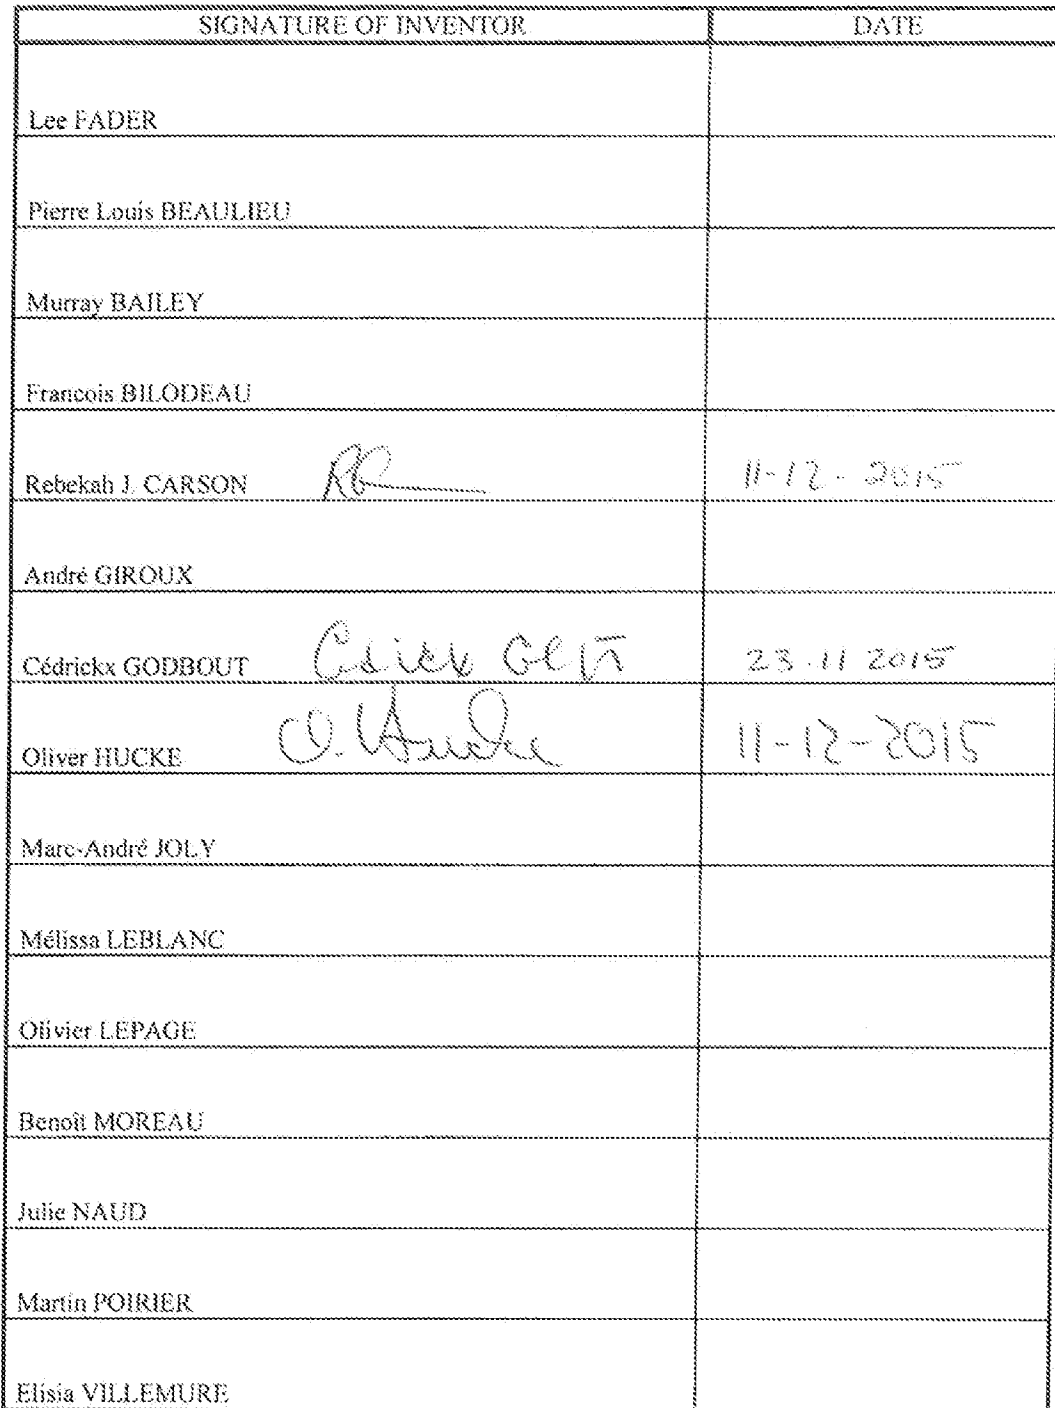 SIGNATURE OF INVENTOR DATE
Lee FADER
Pierre Louis BEAULIEU
Murray BAILEY
Francois BILODEAU
Rebekah J. CARSON 11-12-2015
André GIROUX
Cédrickx GODBOUT 23.11 2015
Oliver HUCKE O. Hucke 11-12-2015
Marc-André JOLY
Mélissa LEBLANC
Olivier LEPAGE
Benoît MOREAU
Julie NAUD
Martin POIRIER
Elisia VILLEMURE